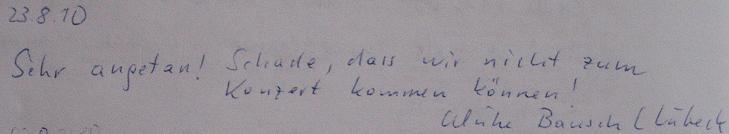 23.8.10
Sehr angetan! Schade, dass wir nicht zum
Konzert kommen können!
Ulrike Bausch (Lübeck